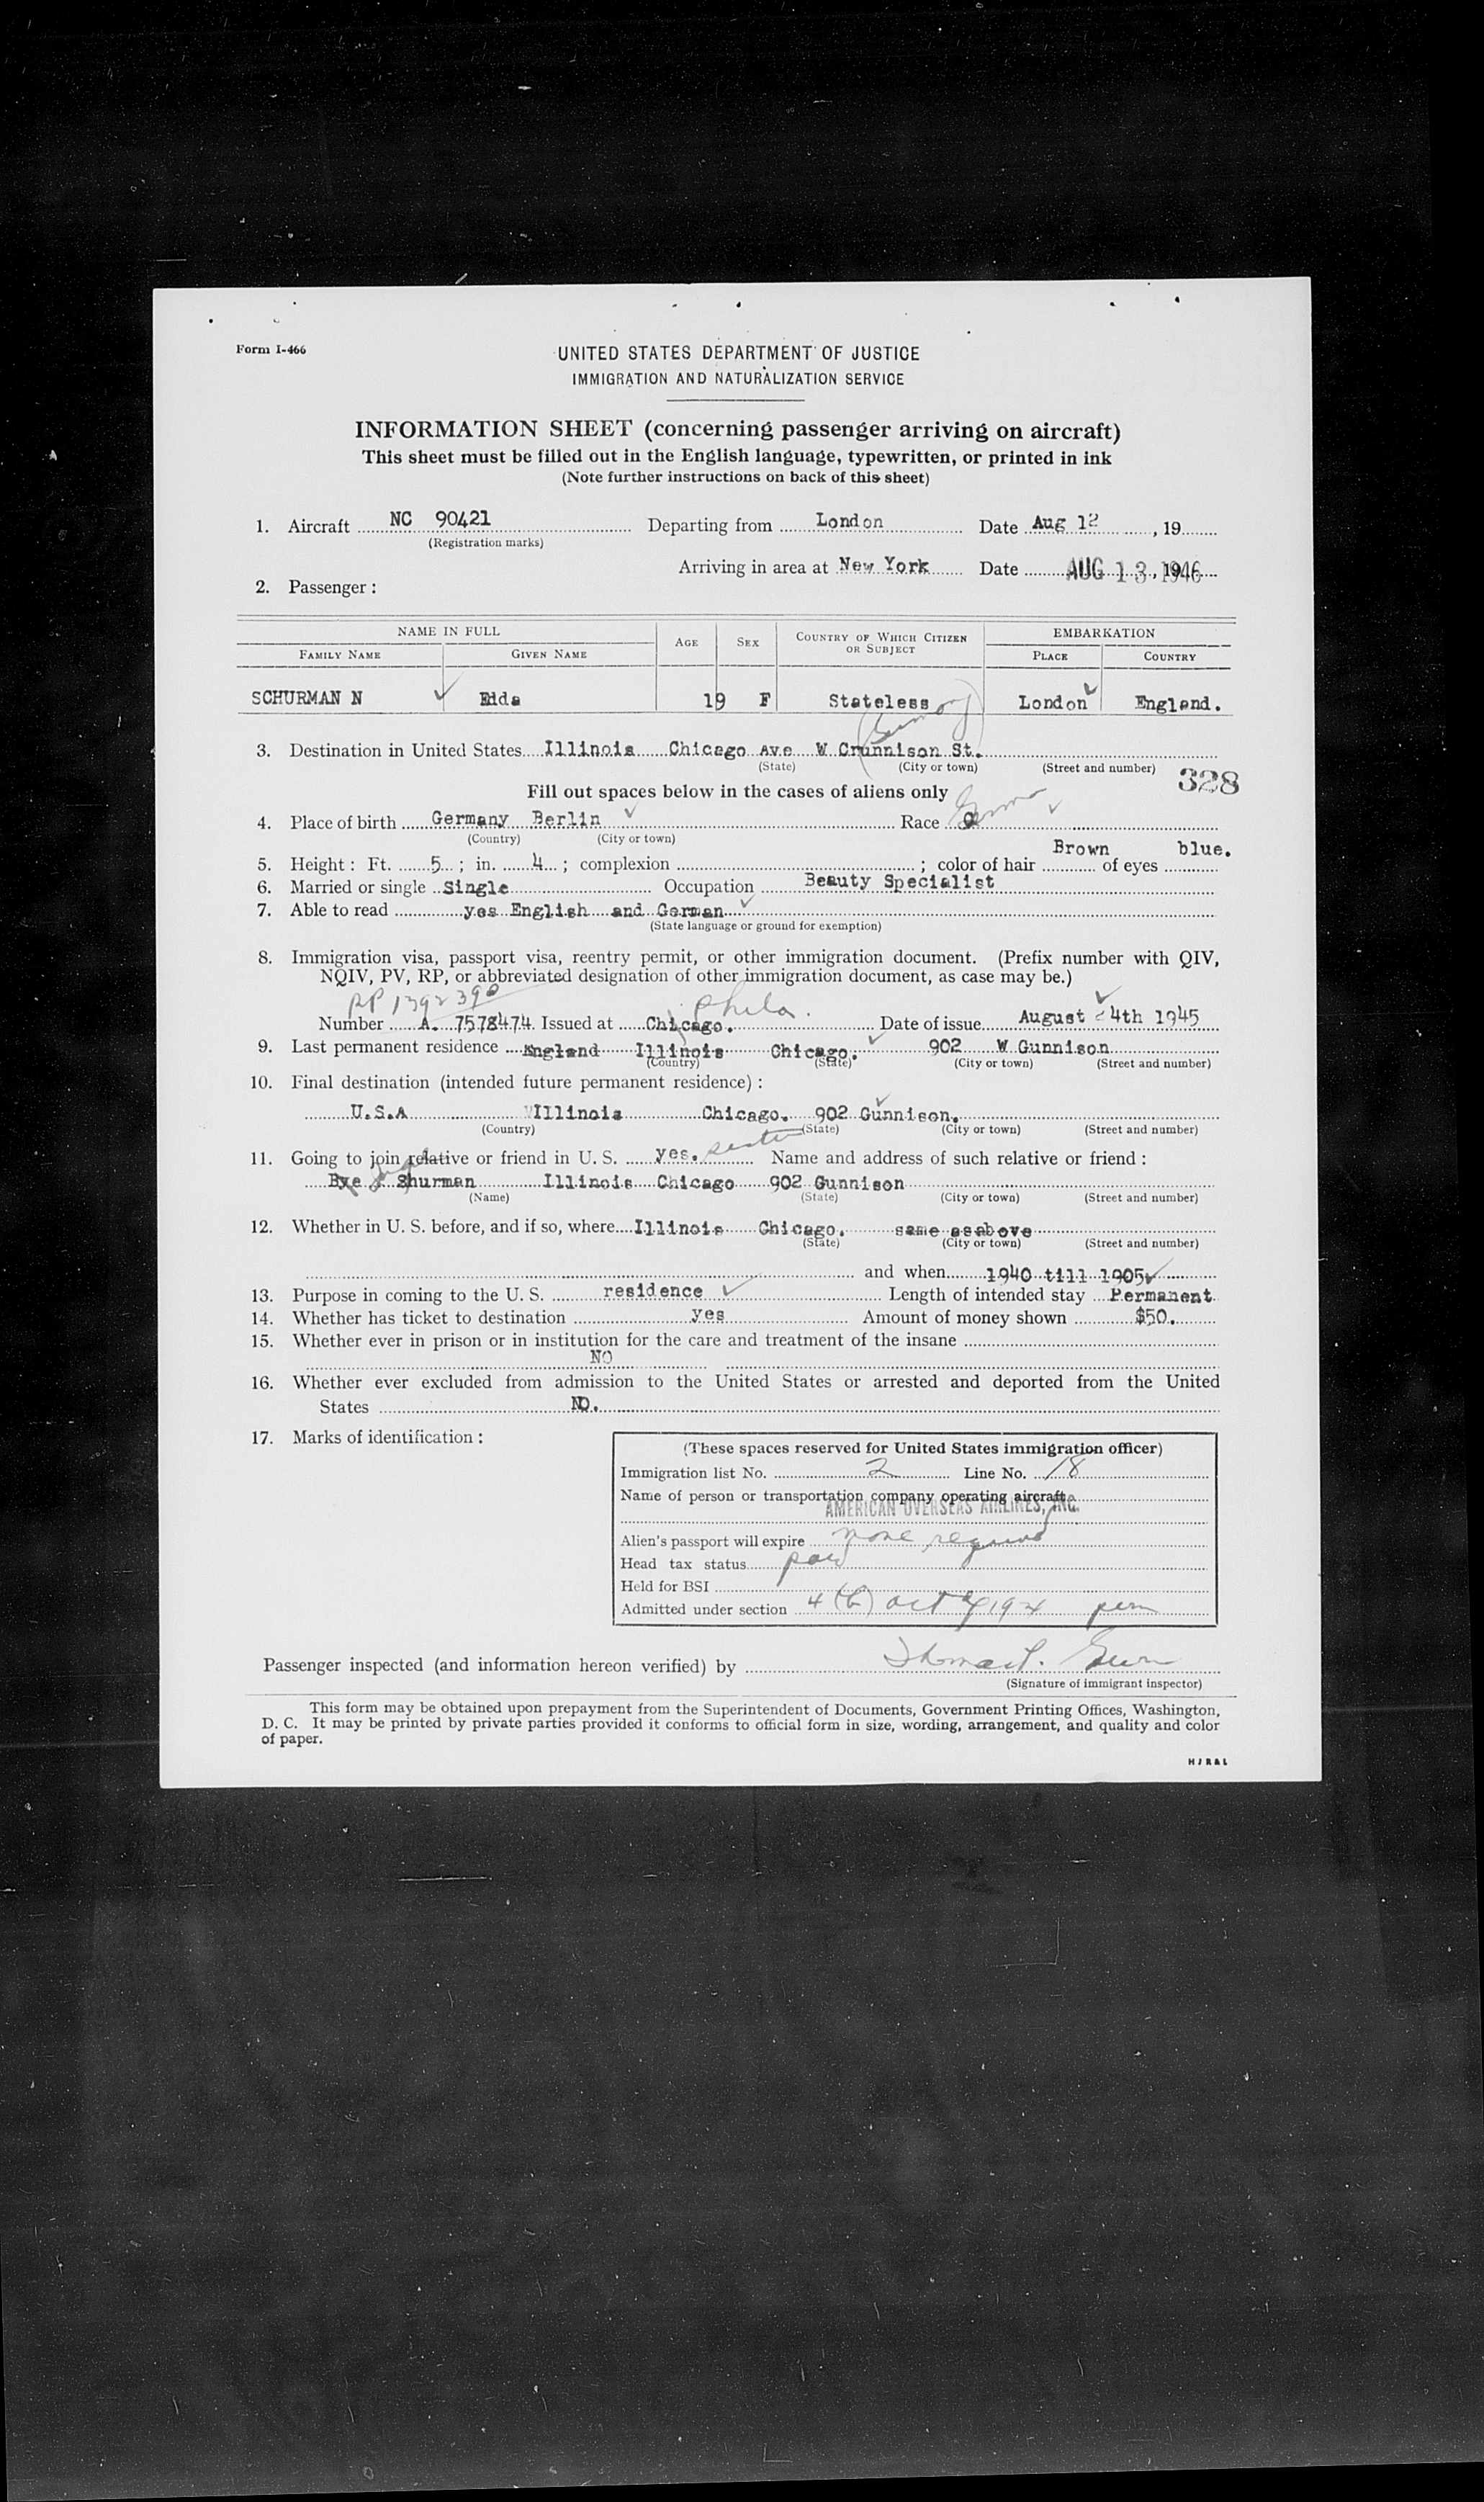 Form I-466
UNITED STATES DEPARTMENT OF JUSTICE
IMMIGRATION AND NATURALIZATION SERVICE
INFORMATION SHEET (concerning passenger arriving on aircraft)
This sheet must be filled out in the English language, typewritten, or printed in ink
(Note further instructions on back of this sheet)
1. Aircraft NC 90421 Departing from London Date Aug 12, 19
(Registration marks)
Arriving in area at New York Date AUG 13, 1946
2. Passenger:
NAME IN FULL AGE SEX COUNTRY OF WHICH CITIZEN OR SUBJECT EMBARKATION
FAMILY NAME GIVEN NAME PLACE COUNTRY
SCHURMAN N Edda 19 F Stateless London England.
3. Destination in United States Illinois Chicago Ave W Crunnison St.
(State) (City or town) (Street and number)
328
Fill out spaces below in the cases of aliens only
4. Place of birth Germany Berlin Race
(Country) (City or town)
5. Height: Ft. 5; in. 4; complexion ; color of hair Brown of eyes blue.
6. Married or single Single Occupation Beauty Specialist
7. Able to read yes English and German
(State language or ground for exemption)
8. Immigration visa, passport visa, reentry permit, or other immigration document. (Prefix number with QIV,
NQIV, PV, RP, or abbreviated designation of other immigration document, as case may be.)
RP 1392390 Phila.
Number A. 7578474 Issued at Chicago. Date of issue August 4th 1945
9. Last permanent residence England Illinois Chicago. 902 W Gunnison
(Country) (State) (City or town) (Street and number)
10. Final destination (intended future permanent residence):
U.S.A Illinois Chicago. 902 Gunnison.
(Country) (State) (City or town) (Street and number)
11. Going to join relative or friend in U. S. yes. sister Name and address of such relative or friend:
Shurman Illinois Chicago 902 Gunnison
(Name) (State) (City or town) (Street and number)
12. Whether in U. S. before, and if so, where Illinois Chicago. same asabove
(State) (City or town) (Street and number)
and when 1940 till 1905
13. Purpose in coming to the U. S. residence Length of intended stay Permanent
14. Whether has ticket to destination yes Amount of money shown $50.
15. Whether ever in prison or in institution for the care and treatment of the insane
NO
16. Whether ever excluded from admission to the United States or arrested and deported from the United
States NO.
17. Marks of identification:
(These spaces reserved for United States immigration officer)
Immigration list No. 2 Line No. 18
Name of person or transportation company operating aircraft
AMERICAN OVERSEAS AIRLINES, INC.
Alien's passport will expire none required
Head tax status paid
Held for BSI
Admitted under section 4 (b) act of 1924 perm
Passenger inspected (and information hereon verified) by
(Signature of immigrant inspector)
This form may be obtained upon prepayment from the Superintendent of Documents, Government Printing Offices, Washington,
D. C. It may be printed by private parties provided it conforms to official form in size, wording, arrangement, and quality and color
of paper.
HJR&L